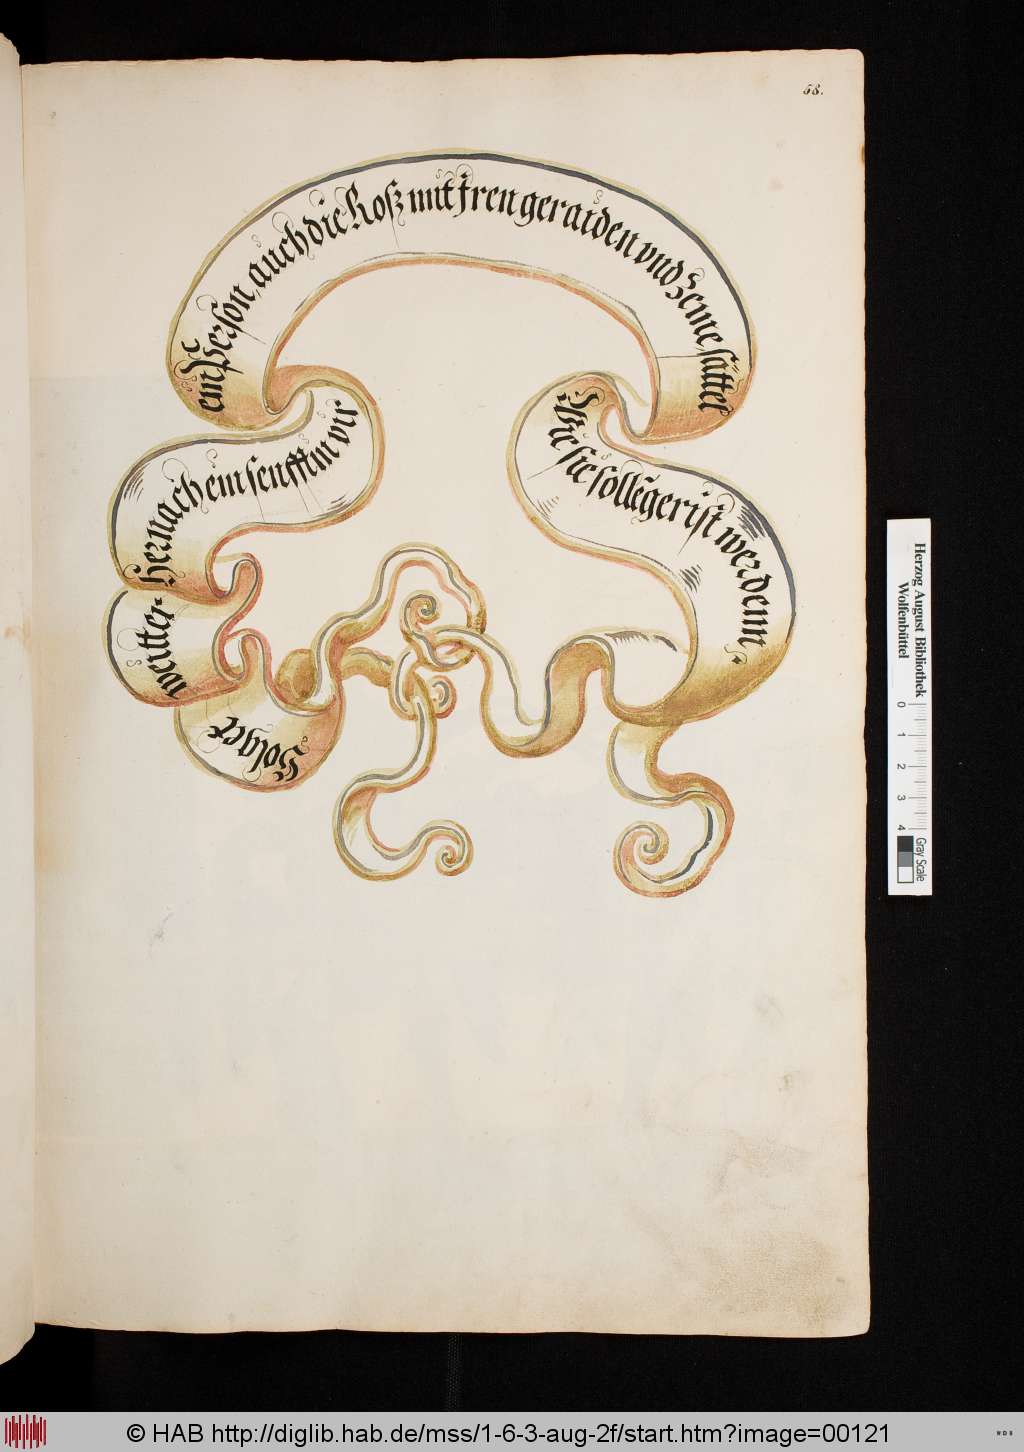 58.
Volget
weitter
hernach ein senfftin vir
ein Person, auch die Roß mit jren geraiden vnd Zeme sättel
Wie sie solle gerist werdenn.
Herzog August Bibliothek
Wolfenbüttel
0 1 2 3 4
Gray Scale
© HAB http://diglib.hab.de/mss/1-6-3-aug-2f/start.htm?image=00121
WDB